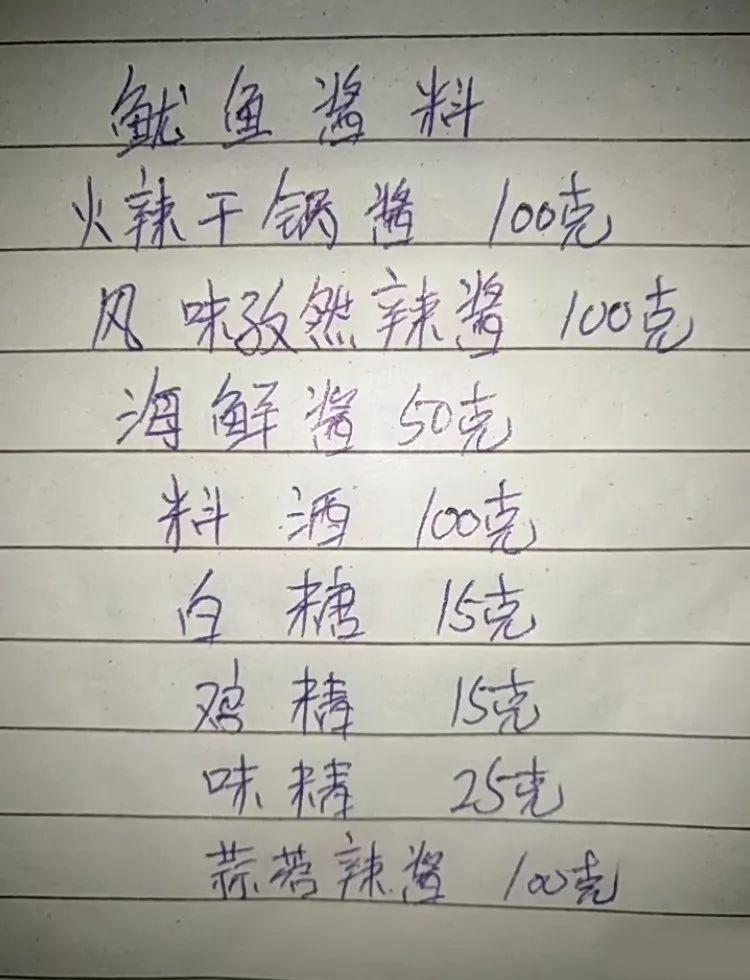 鱿鱼酱料
火辣干锅酱 100克
风味孜然辣酱 100克
海鲜酱 50克
料酒 100克
白糖 15克
鸡精 15克
味精 25克
蒜蓉辣酱 100克